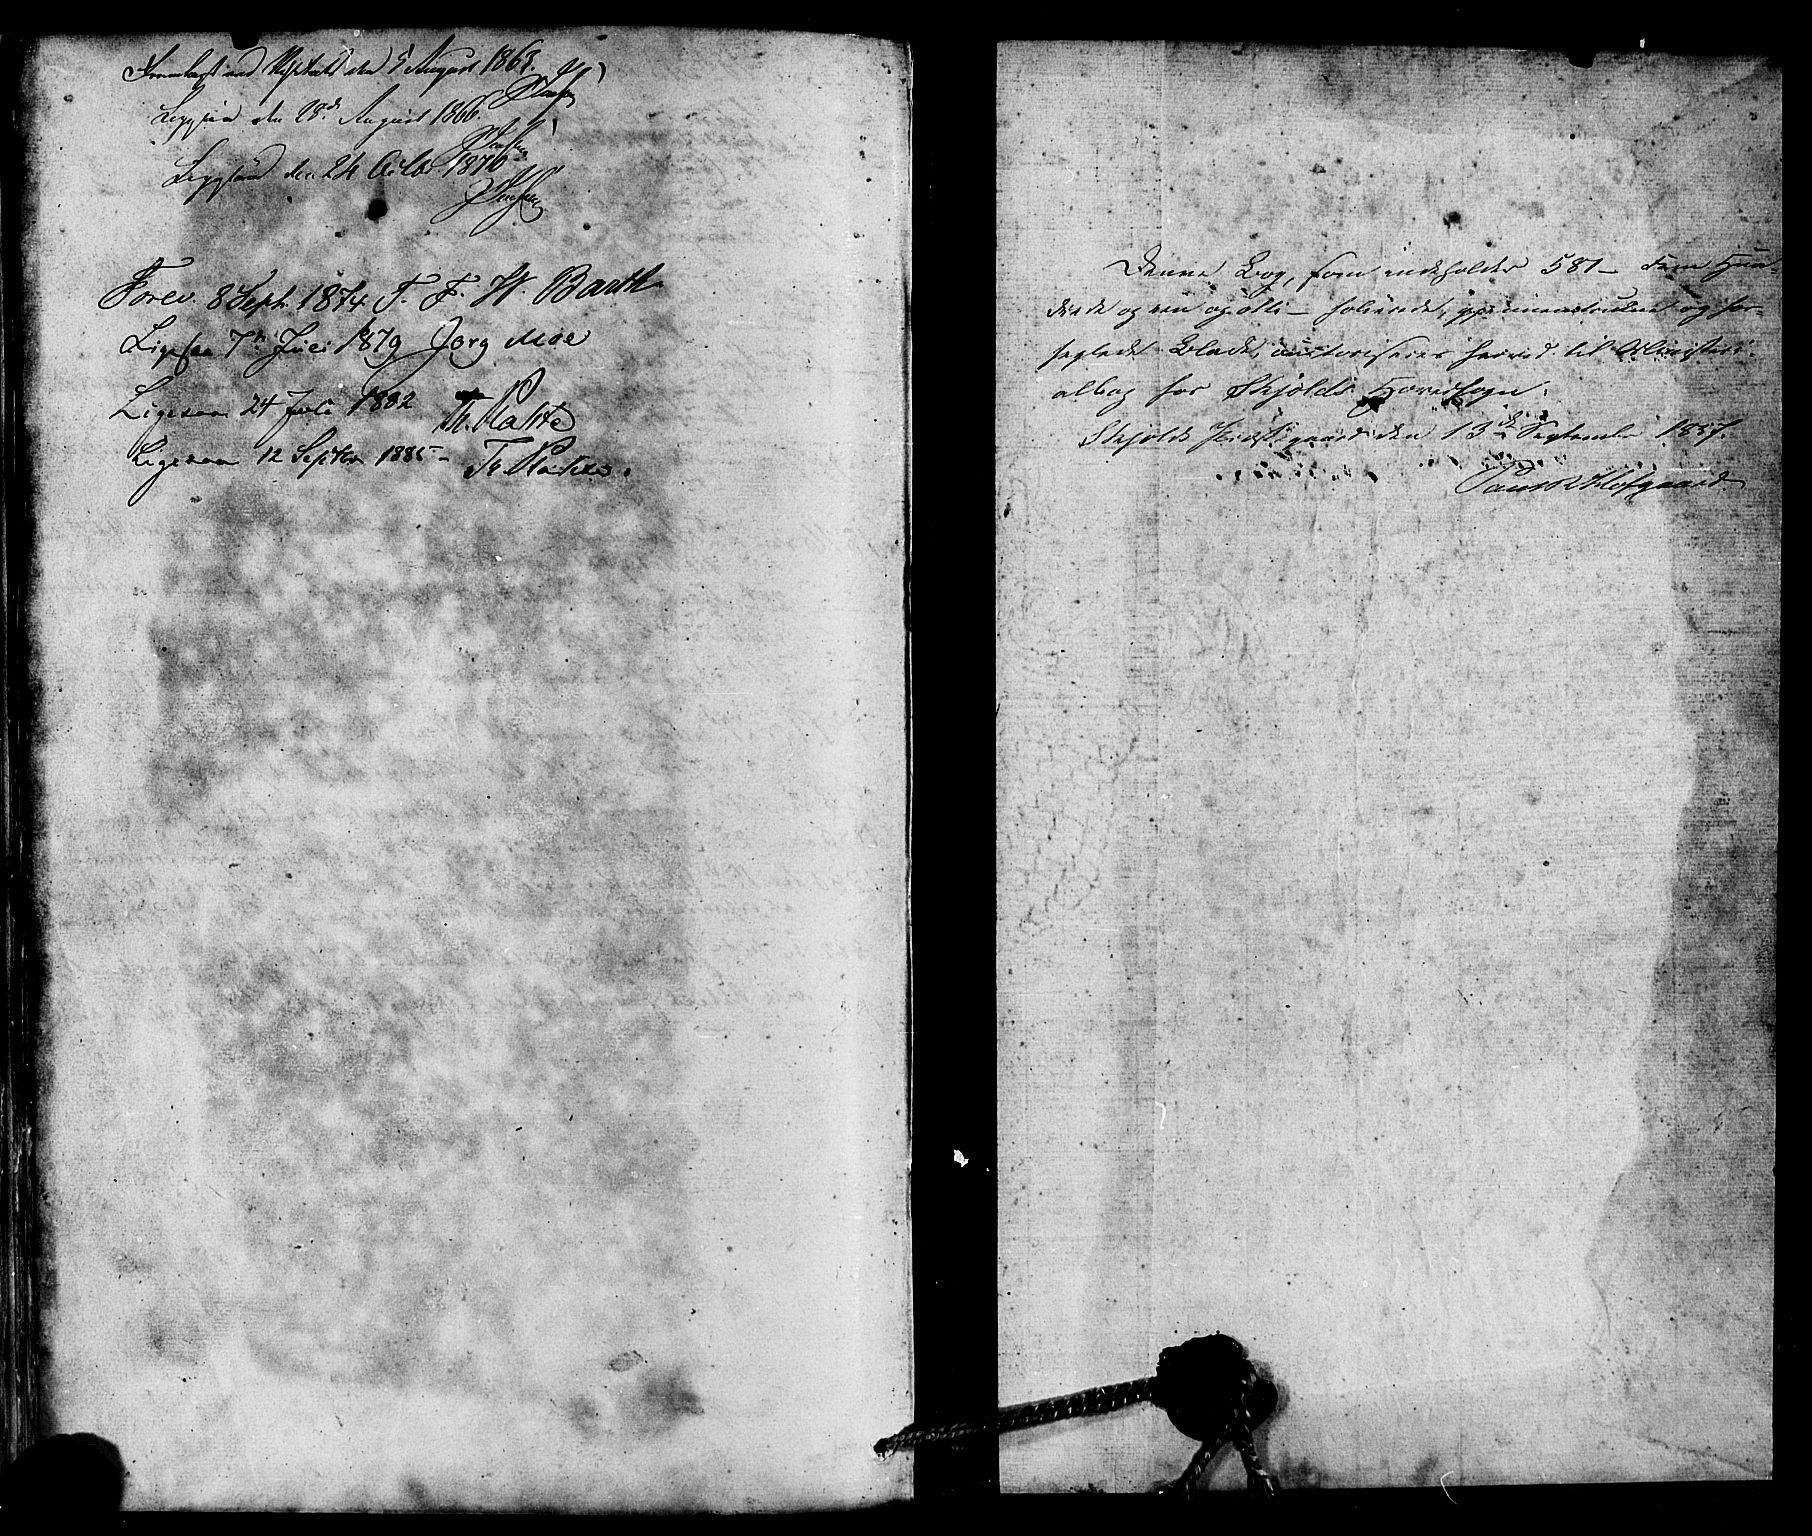 Fremlagt ved Visitats den 5 August 1863.
Ligesaa den 28de August 1866.
Ligesaa den 24 Octbr 1870
Forev. 8 Sept. 1874 T. F. W. Barth
Ligesaa 7de Juli 1879 Jørg Moe
Ligesaa 24 Juli 1882
Ligesaa 12 September 1885
Denne Bog, som indeholder 581 – Fem Hun-
drede og een og otti – folierede, gjennemtrukne og for-
seglede Blade, autoriseres herved til Ministeri-
albog for Skjolds Hovedsogn.
Skjolds Præstegaard den 13de September 1857.